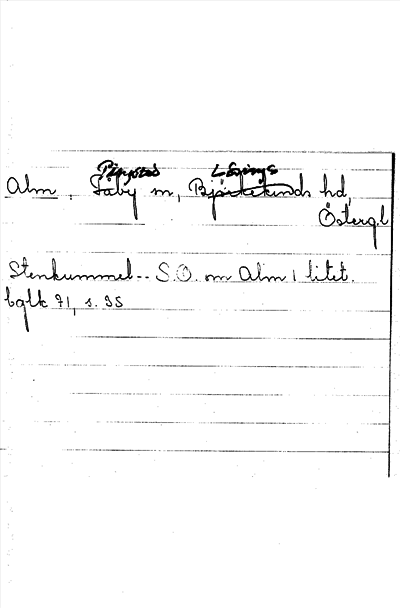 Ringstad Lösings
Alm, Täby sn, Björkekinds hd,
Östergl
Stenkummel-- S.O. om Alm, litet.
bglk 71, s. 35